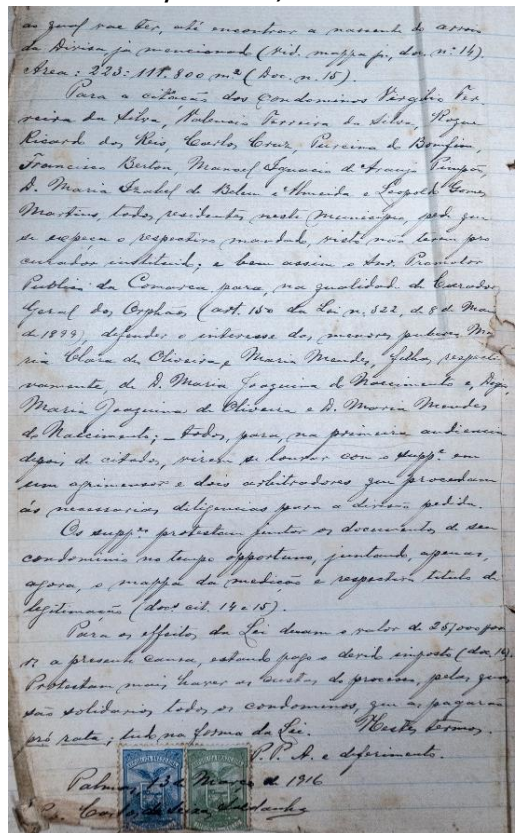 ao qual vae ter, até encontrar a nascente do arroio
da Divisa já mencionado (vid. mappa fs, doc. nº 14).
Area: 223:111.800 m² (Doc. n. 15).
Para a citação dos condominos Virgilio Fer-
reira da Silva, Valencio Ferreira da Silva, Roque
Ricardo dos Reis, Carlos Cruz, Pereira do Bomfim,
Francisco Berton, Manoel Ignacio de Araujo Pimpão,
D. Maria Izabel de Belem e Almeida e Leopoldo Gomes
Martins, todos residentes neste Municipio, pede que
se expeça o respectivo mandado, visto não terem pro-
curador instituido; e bem assim o Snr. Promotor
Publico da Comarca para, na qualidade de Curador
Geral dos Orphãos (art. 150 da Lei n. 322, de 8 de Maio
de 1899) defender o interesse dos menores puberes Ma-
ria Clara de Oliveira e Maria Mendes, filhas respecti-
vamente, de D. Maria Joaquina do Nascimento e,
Maria Joaquina de Oliveira e D. Maria Mendes
do Nascimento; _ todos, para, na primeira audiencia
depois de citados, virem se louvar com o supp.e em
um agrimensor e dois arbitradores que procedam
ás necessarias diligencias para a divisão pedida.
Os supp.es protestam juntar os documentos de seu
condominio no tempo opportuno, juntando, apenas,
agora, o mappa da medição e respectivo titulo de
legitimação (docs cit. 14 e 15).
Para os effeitos da Lei deram o valor de 25,000$000
a presente causa, estando pago o devido imposto (doc. 16).
Protestam mais haver as custas do processo, pelas quaes
são solidarios todos os condominos, que as pagarão
pró rata, tudo na forma da Lei. Nestes termos.
P. P. A. e deferimento.
Palmas, 13 de Março de 1916
Saldanha